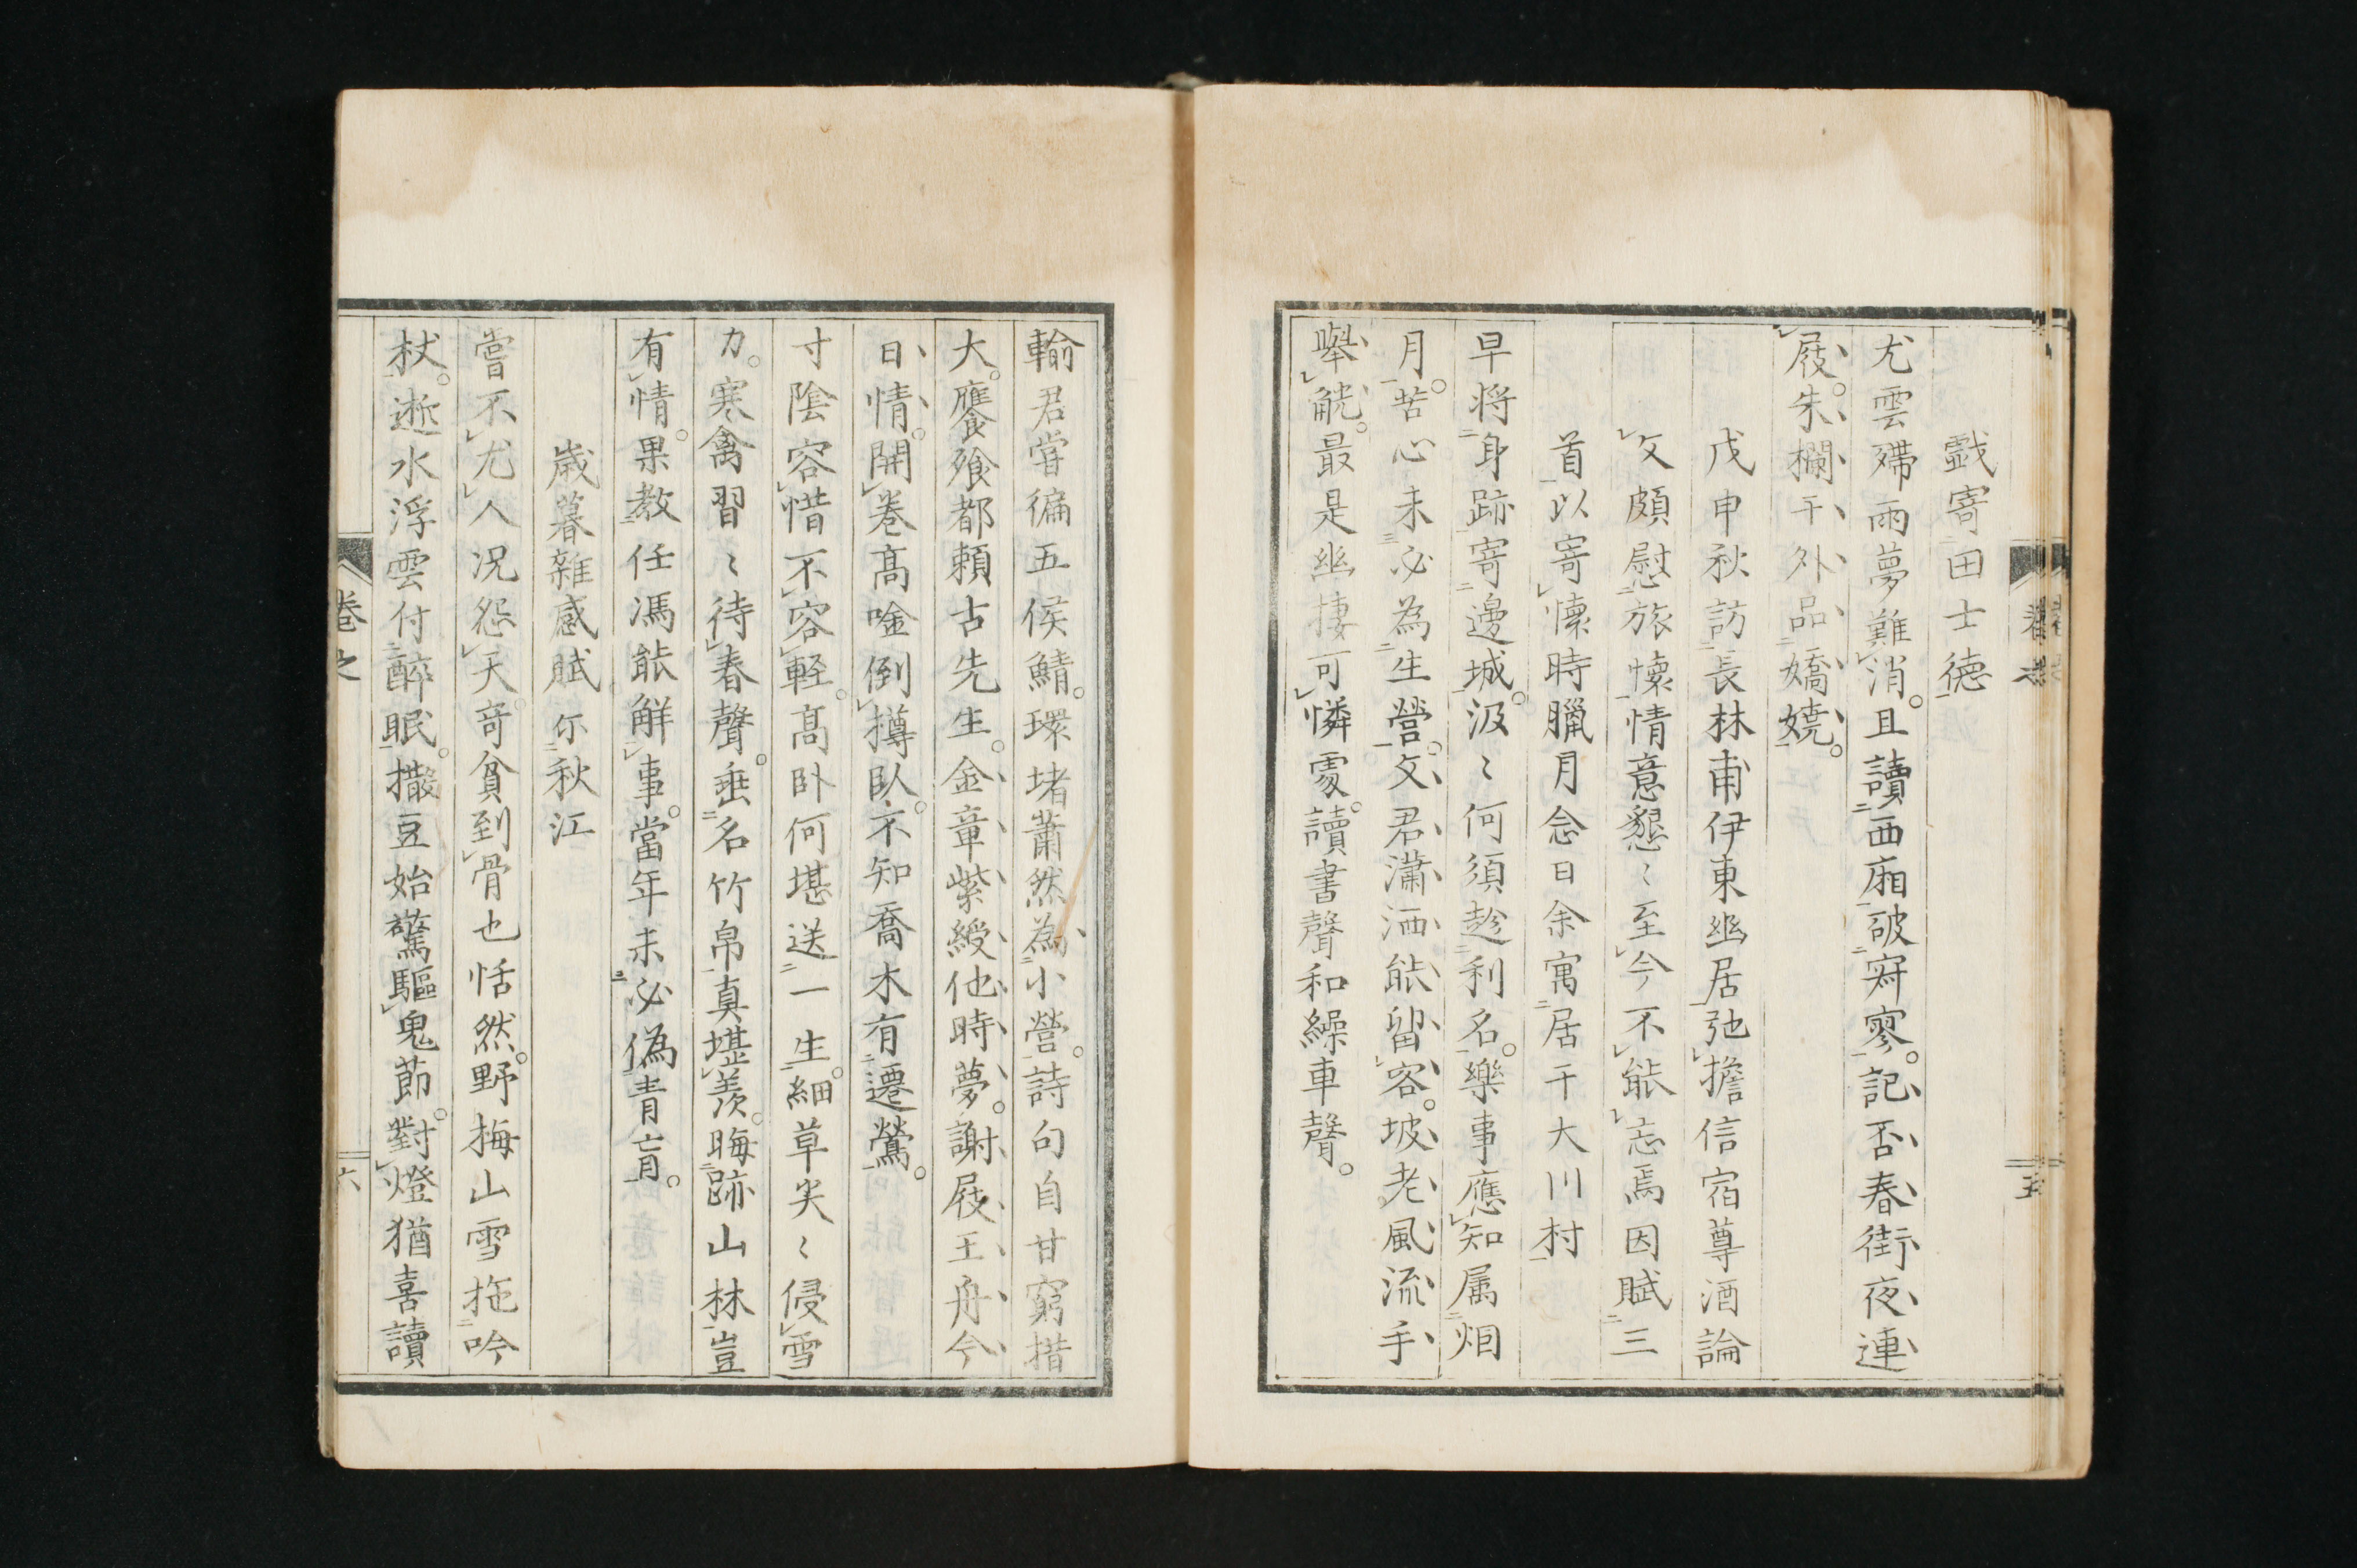 戯寄田士德
尤雲殢雨夢難消。且讀西廂破寂寥。記否春街夜連
屐。朱欄干外品嬌嬈。
戊申秋訪長林甫伊東幽居弛擔信宿尊酒論
文頗慰旅懷情意懇〻至今不能忘焉因賦三
首以寄懷時臘月念日余寓居干大川村
早将身跡寄邊城。汲〻何須趁利名。樂事應知属烟
月。苦心未必為生營。文君瀟洒能留客。坡老風流手
擧觥。最是幽棲可憐處。讀書聲和繰車聲。
卷之
五
輸君嘗徧五侯鯖。環堵蕭然為小營。詩句自甘窮措
大。饔飱都賴古先生。金章紫綬他時夢。謝屐王舟今
日情。開卷高唫倒樽臥。不知喬木有遷鶯。
寸陰容惜不容軽。高卧何堪送一生。細草尖〻侵雪
力。寒禽習〻待春聲。垂名竹帛真堪羨。晦跡山林豈
有情。果教任馮能解事。當年未必偽青盲。
歳暮雜感賦示秋江
嘗不尤人况怨天。奇貧到骨也恬然。野梅山雪拖吟
杖。逝水浮雲付醉眠。撒豆始驚驅鬼節。對燈猶喜讀
卷之
六